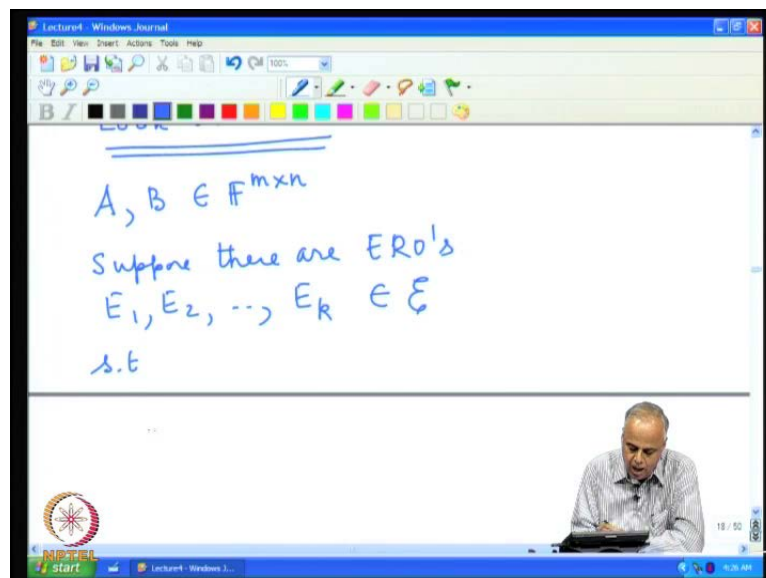 Lecture4 - Windows Journal
File Edit View Insert Actions Tools Help
100%
B I
A, B ∈ F^{m×n}
Suppose there are ERO's
E_1, E_2, .., E_k ∈ ξ
s.t
18 / 50
NPTEL
start Lecture4 - Windows J... 4:26 AM